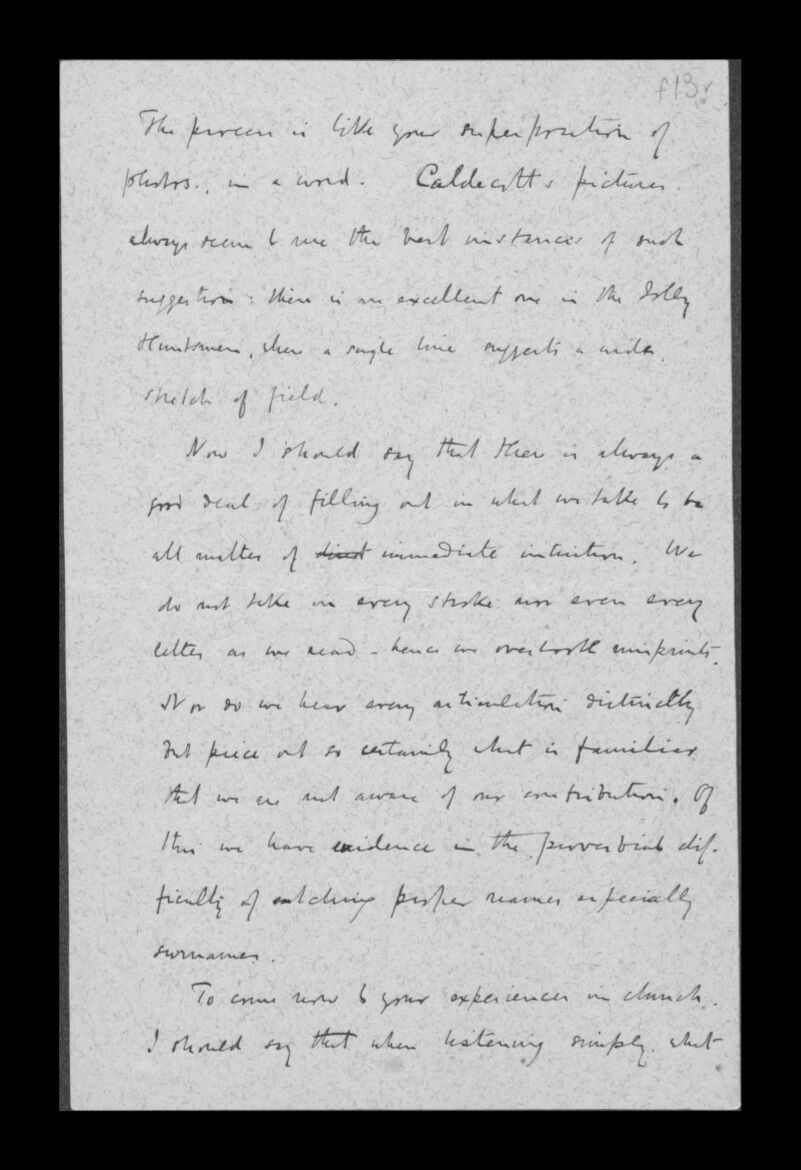 f13r
The process is like your superposition of
photos., in a word. Caldecott's pictures
always seem to me the best instances of such
suggestion: there is an excellent one in the Jolly
Huntsmen, where a single line suggests a wide
stretch of field.
Now I should say that there is always a
good deal of filling out in what we take to be
all matter of direct immediate intuition. We
do not take in every stroke nor even every
letter as we read - hence we overlook misprints.
Nor do we hear every articulation distinctly
but piece out so certainly what is familiar
that we are not aware of our contribution. Of
this we have evidence in the proverbial dif-
ficulty of catching proper names especially
surnames.
To come now to your experiences in church.
I should say that when listening simply what